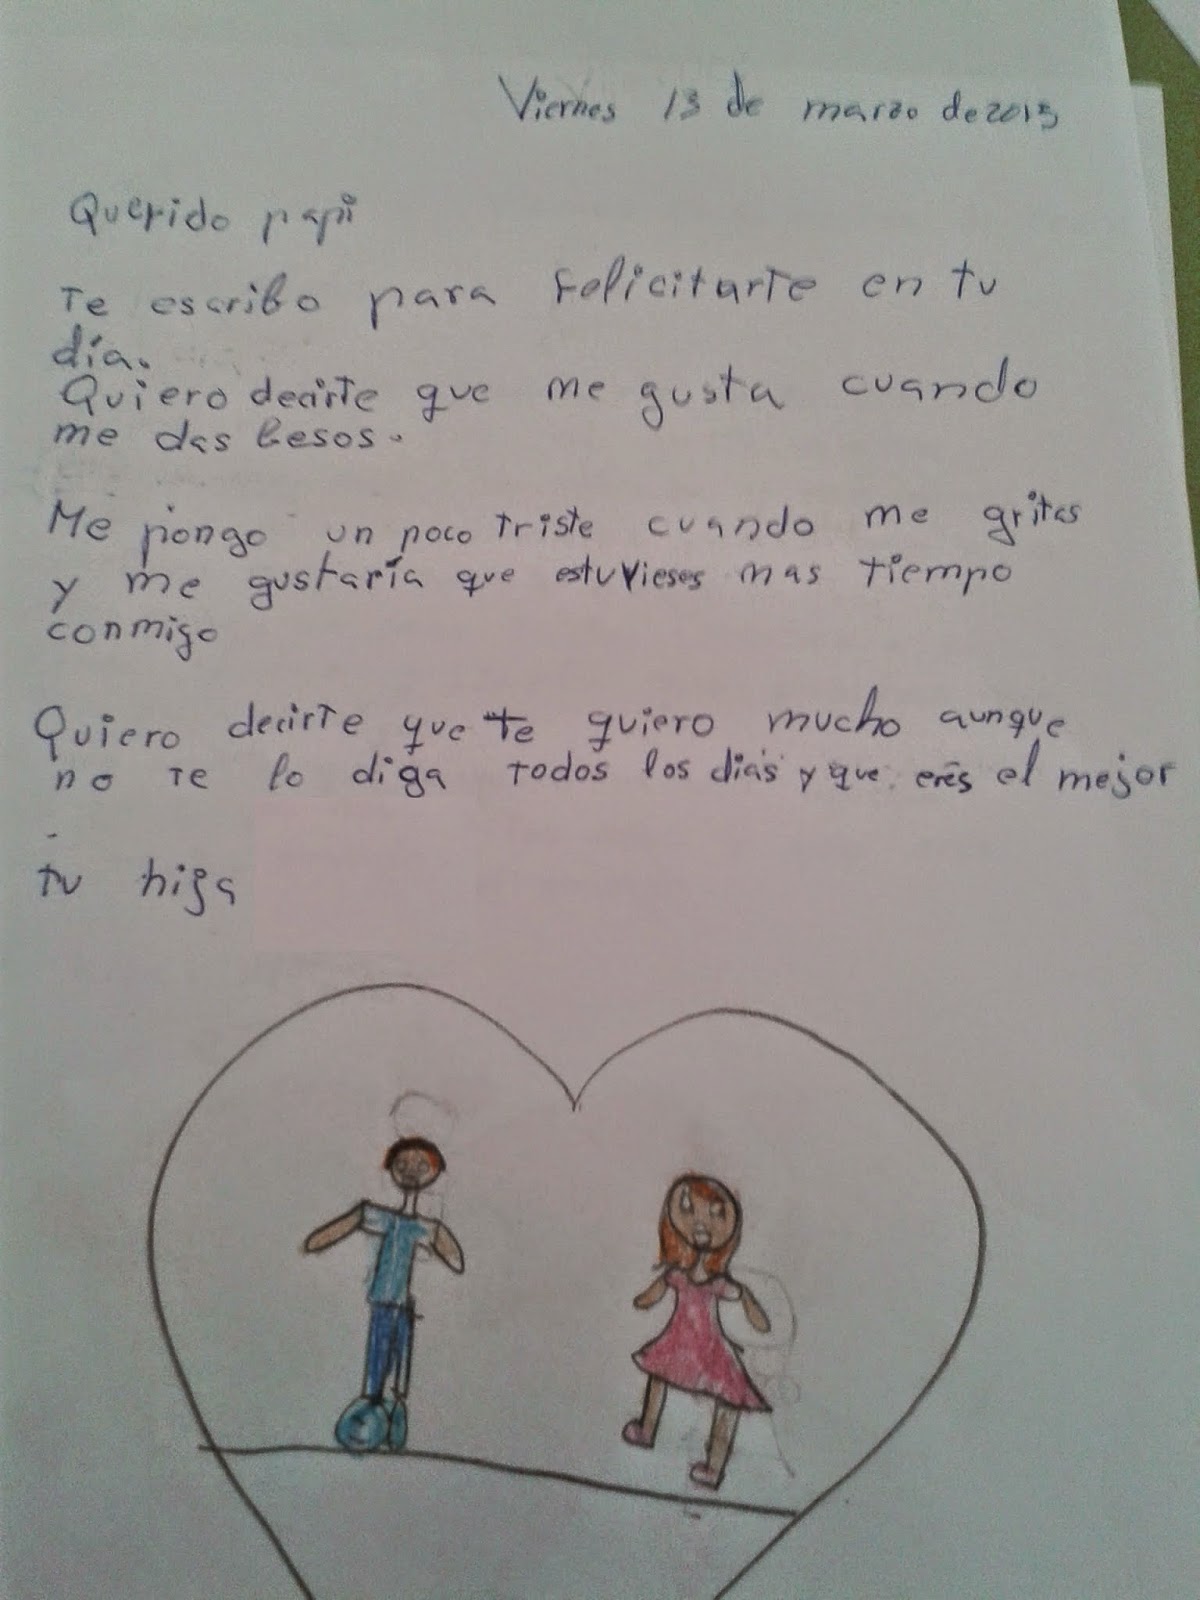 Viernes 13 de marzo de 2015
Querido papi
Te escribo para felicitarte en tu
día.
Quiero decirte que me gusta cuando
me das besos.
Me pongo un poco triste cuando me gritas
y me gustaría que estuvieses mas tiempo
conmigo
Quiero decirte que te quiero mucho aunque
no te lo diga todos los dias y que eres el mejor
.
tu hija